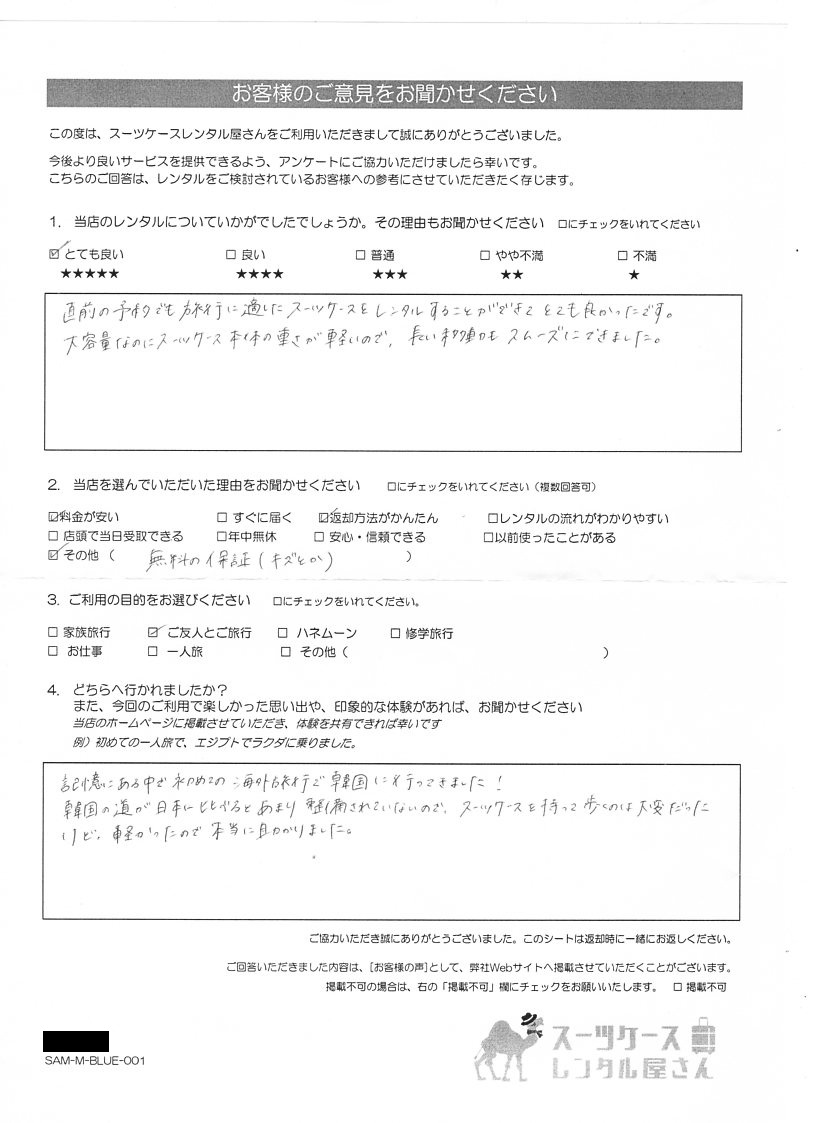 お客様のご意見をお聞かせください
この度は、スーツケースレンタル屋さんをご利用いただきまして誠にありがとうございました。
今後より良いサービスを提供できるよう、アンケートにご協力いただけましたら幸いです。
こちらのご回答は、レンタルをご検討されているお客様への参考にさせていただきたく存じます。
1. 当店のレンタルについていかがでしたでしょうか。その理由もお聞かせください □にチェックをいれてください
☑とても良い □ 良い □ 普通 □ やや不満 □ 不満
★★★★★ ★★★★ ★★★ ★★ ★
直前の予約でも旅行に適したスーツケースをレンタルすることができてとても良かったです。
大容量なのにスーツケース本体の重さが軽いので、長い移動もスムーズにできました。
2. 当店を選んでいただいた理由をお聞かせください □にチェックをいれてください（複数回答可）
☑料金が安い □ すぐに届く ☑返却方法がかんたん □レンタルの流れがわかりやすい
□ 店頭で当日受取できる □年中無休 □ 安心・信頼できる □以前使ったことがある
☑ その他（ 無料の保証（キズとか） ）
3. ご利用の目的をお選びください □にチェックをいれてください。
□ 家族旅行 ☑ ご友人とご旅行 □ ハネムーン □ 修学旅行
□ お仕事 □ 一人旅 □ その他（ ）
4. どちらへ行かれましたか？
また、今回のご利用で楽しかった思い出や、印象的な体験があれば、お聞かせください
当店のホームページに掲載させていただき、体験を共有できれば幸いです
例）初めての一人旅で、エジプトでラクダに乗りました。
記憶にある中で初めての海外旅行で韓国に行ってきました！
韓国の道が日本にくらべるとあまり整備されていないので、スーツケースを持って歩くのは大変だった
けど、軽かったので本当に助かりました。
ご協力いただき誠にありがとうございました。このシートは返却時に一緒にお返しください。
ご回答いただきました内容は、[お客様の声]として、弊社Webサイトへ掲載させていただくことがございます。
掲載不可の場合は、右の「掲載不可」欄にチェックをお願いいたします。 □ 掲載不可
SAM-M-BLUE-001
スーツケース
レンタル屋さん